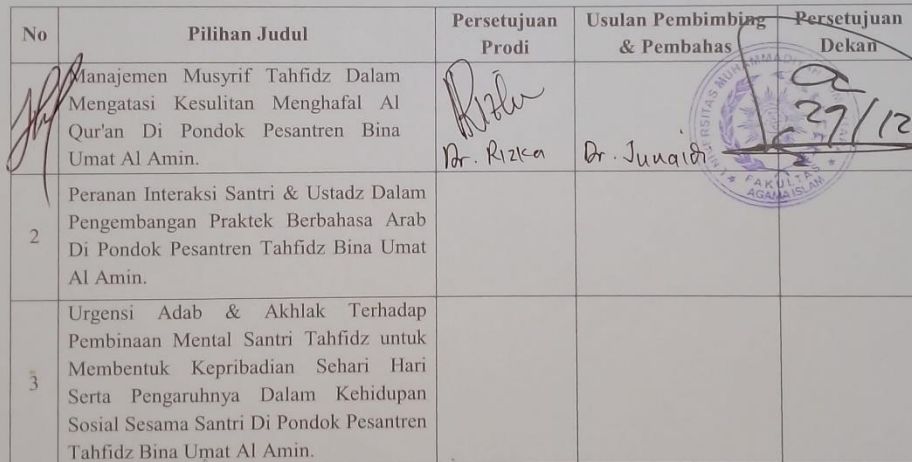 No
Pilihan Judul
Persetujuan
Prodi
Usulan Pembimbing
& Pembahas
Persetujuan
Dekan
Manajemen Musyrif Tahfidz Dalam
Mengatasi Kesulitan Menghafal Al
Qur'an Di Pondok Pesantren Bina
Umat Al Amin.
Dr. Rizka
Dr. Junaidi
27/12
FAKULTAS
AGAMA ISLAM
2
Peranan Interaksi Santri & Ustadz Dalam
Pengembangan Praktek Berbahasa Arab
Di Pondok Pesantren Tahfidz Bina Umat
Al Amin.
3
Urgensi Adab & Akhlak Terhadap
Pembinaan Mental Santri Tahfidz untuk
Membentuk Kepribadian Sehari Hari
Serta Pengaruhnya Dalam Kehidupan
Sosial Sesama Santri Di Pondok Pesantren
Tahfidz Bina Umat Al Amin.